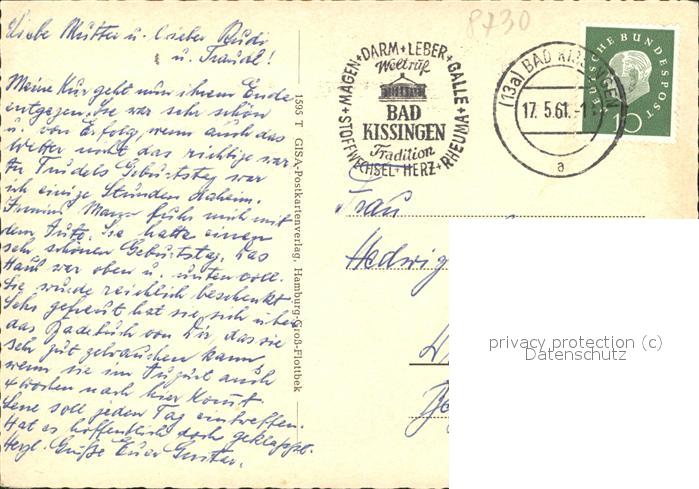 Liebe Mutter u. lieber Rudi
u. Traudl!
Meine Kur geht nun ihrem Ende
entgegen. Sie war sehr schön
u. von Erfolg, wenn auch das
Wetter nicht das richtige war.
An Trudels Geburtstag war
ich einige Stunden daheim.
Mann fuhr mich mit
dem Auto. Sie hatte einen
sehr schönen Geburtstag. Das
Haus war oben u. unten voll.
Sie wurde reichlich beschenkt.
Sehr gefreut hat sie sich über
das Badetuch von Dir, das sie
sehr gut gebrauchen kann,
wenn sie im August auch
4 Wochen nach hier kommt.
Lene soll jeden Tag eintreffen.
Hat es hoffentlich doch geklappt.
Herzl. Grüße Euer Gustav.
1595 T GISA-Postkartenverlag, Hamburg-Groß-Flottbek
8730
STOFFWECHSEL+MAGEN+DARM+LEBER+GALLE+RHEUMA+HERZ+
Weltruf
BAD
KISSINGEN
Tradition
(13a) BAD KISSINGEN
17.5.61.-1
a
DEUTSCHE BUNDESPOST
10
Frau
Hedwig
privacy protection (c)
Datenschutz